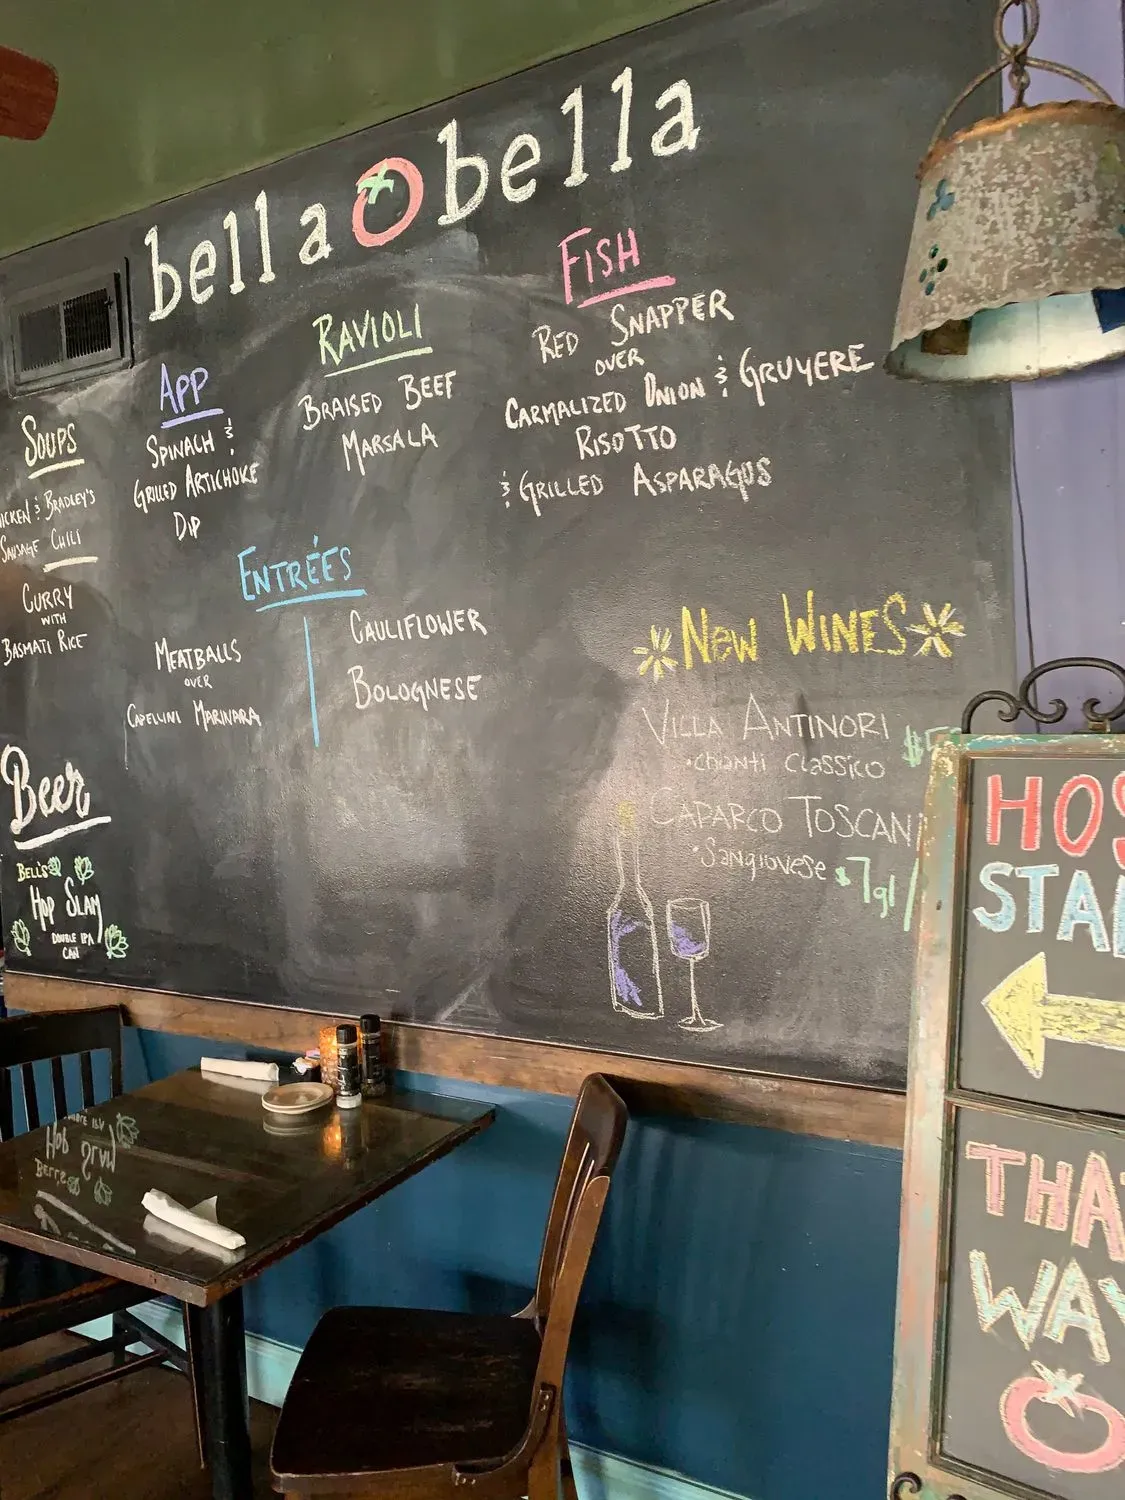 bella bella
SOUPS
& BRADLEY'S
SAUSAGE CHILI
CURRY
WITH
BASMATI RICE
APP
SPINACH &
GRILLED ARTICHOKE
DIP
RAVIOLI
BRAISED BEEF
MARSALA
FISH
RED SNAPPER
OVER
CARMALIZED ONION & GRUYERE
RISOTTO
& GRILLED ASPARAGUS
ENTRÉES
MEATBALLS
OVER
CAPELLINI MARINARA
CAULIFLOWER
BOLOGNESE
Beer
BELL'S
HOP SLAM
DOUBLE IPA
CAN
NEW WINES
VILLA ANTINORI $
• chianti classico
CAPARCO TOSCAN
• Sangiovese $7gl/
HOS
STA
THA
WAY